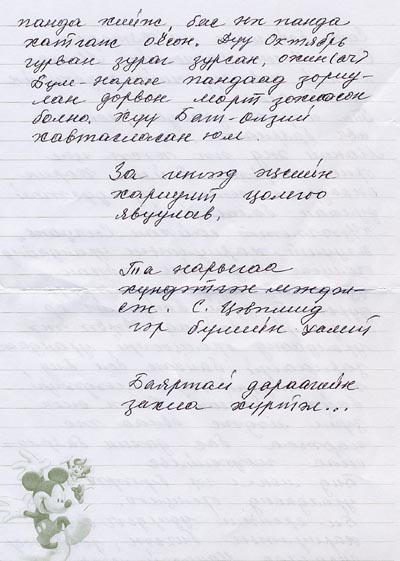 панда хийж, бас нэг панда
хатгаж оёсон. Дүү Октябрь
гурван зураг зурсан, охин (ач)
Бум-Наран пандаад зориу-
лан дөрвөн мөрт зохиосон
болно. Хүү Бат-Өлзий
хавтагласан юм.
За ингээд эцсийн
хариулт цомгоо
явуулав.
Та нарыгаа
хүндэтгэн мэндэл-
еж. С. Цэвэлмид
гэр бүлийн хамт
Баяртай дараагийн
захиа хүртэл...